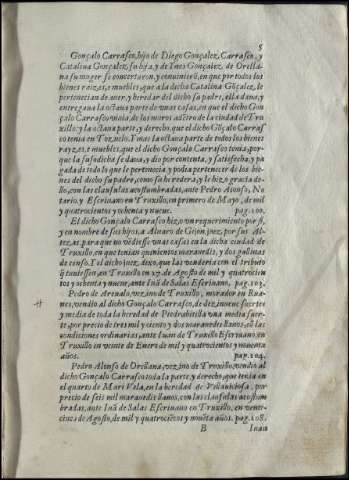 5
Gonçalo Carrasco, hijo de Diego Gonçalez, Carrasco, y
Catalina Gonçalez, su hija, y de Ines Gonçalez, de Orella-
na su muger se concertaron, y conuinierõ, en que por todos los
bienes rayzes, e muebles, que a la dicha Catalina Gõçalez, le
pertenecian de auer, y heredar del dicho su padre, ella daua, y
entregaua la octaua parte de vnas casas, en que el dicho Gon
çalo Carrasco viuia, de los muros adẽtro de la ciudad de Tru
xillo: y la octaua parte, y derecho, que el dicho Gõçalo Carras
co tenia en Tozuelo. Y mas la octaua parte de todos los bienes
rayzes, e muebles, que el dicho Gonçalo Carrasco tenia: por-
que la susodicha se daua, y dio por contenta, y satisfecha, y pa
gada de todo lo que le pertenecia, y podia pertenecer de los bie-
nes del dicho su padre, como su heredera, y le hizo gracia de-
llo, con las clausulas acostumbradas, ante Pedro Alonso, No-
tario, y Escriuano en Truxillo, en primero de Mayo, de mil
y quatrocientos y ochenta y nueue. pag. 100.
El dicho Gonçalo Carrasco hizo vn requerimiento por si,
y en nombre de sus hijos, a Aluaro de Gijon, juez, por sus Al-
tezas, para que no vẽdiesse vnas casas en la dicha ciudad de
Truxillo, en que tenian quinientos marauedis, y dos gallinas
de censo. Y el dicho juez dixo, que las venderia con el tributo
q̃ tuuiessen, en Truxillo en xj. de Agosto de mil y quatrocien
tos y ochenta y nueue, ante Iuã de Salas Escriuano. pag. 103.
Pedro de Areualo, vezino de Truxillo, morador en Rua-
nes, vendio al dicho Gonçalo Carrasco, de diez y nueue suertes
y media de toda la heredad de Piedrahitilla vna media suer-
te, por precio de tres mil y ciento y dos marauedis llanos, cõ las
condiciones ordinarias, ante Iuan de Truxillo Escriuano, en
Truxillo en veinte de Enero de mil y quatrocientos y nouenta
años. pag. 104.
Pedro Alonso de Orellana, vezino de Truxillo, vendio al
dicho Gonçalo Carrasco toda la parte, y derecho, que tenia en
el quarto de Mari Vela, en la heredad de Valhondo, por
precio de seis mil marauedis llanos, con las clausulas acostum
bradas, ante Iuã de Salas Escriuano en Truxillo, en veinti-
cinco de Agosto, de mil y quatrociẽtos y nouẽta años. pag. 108.
B Iuan